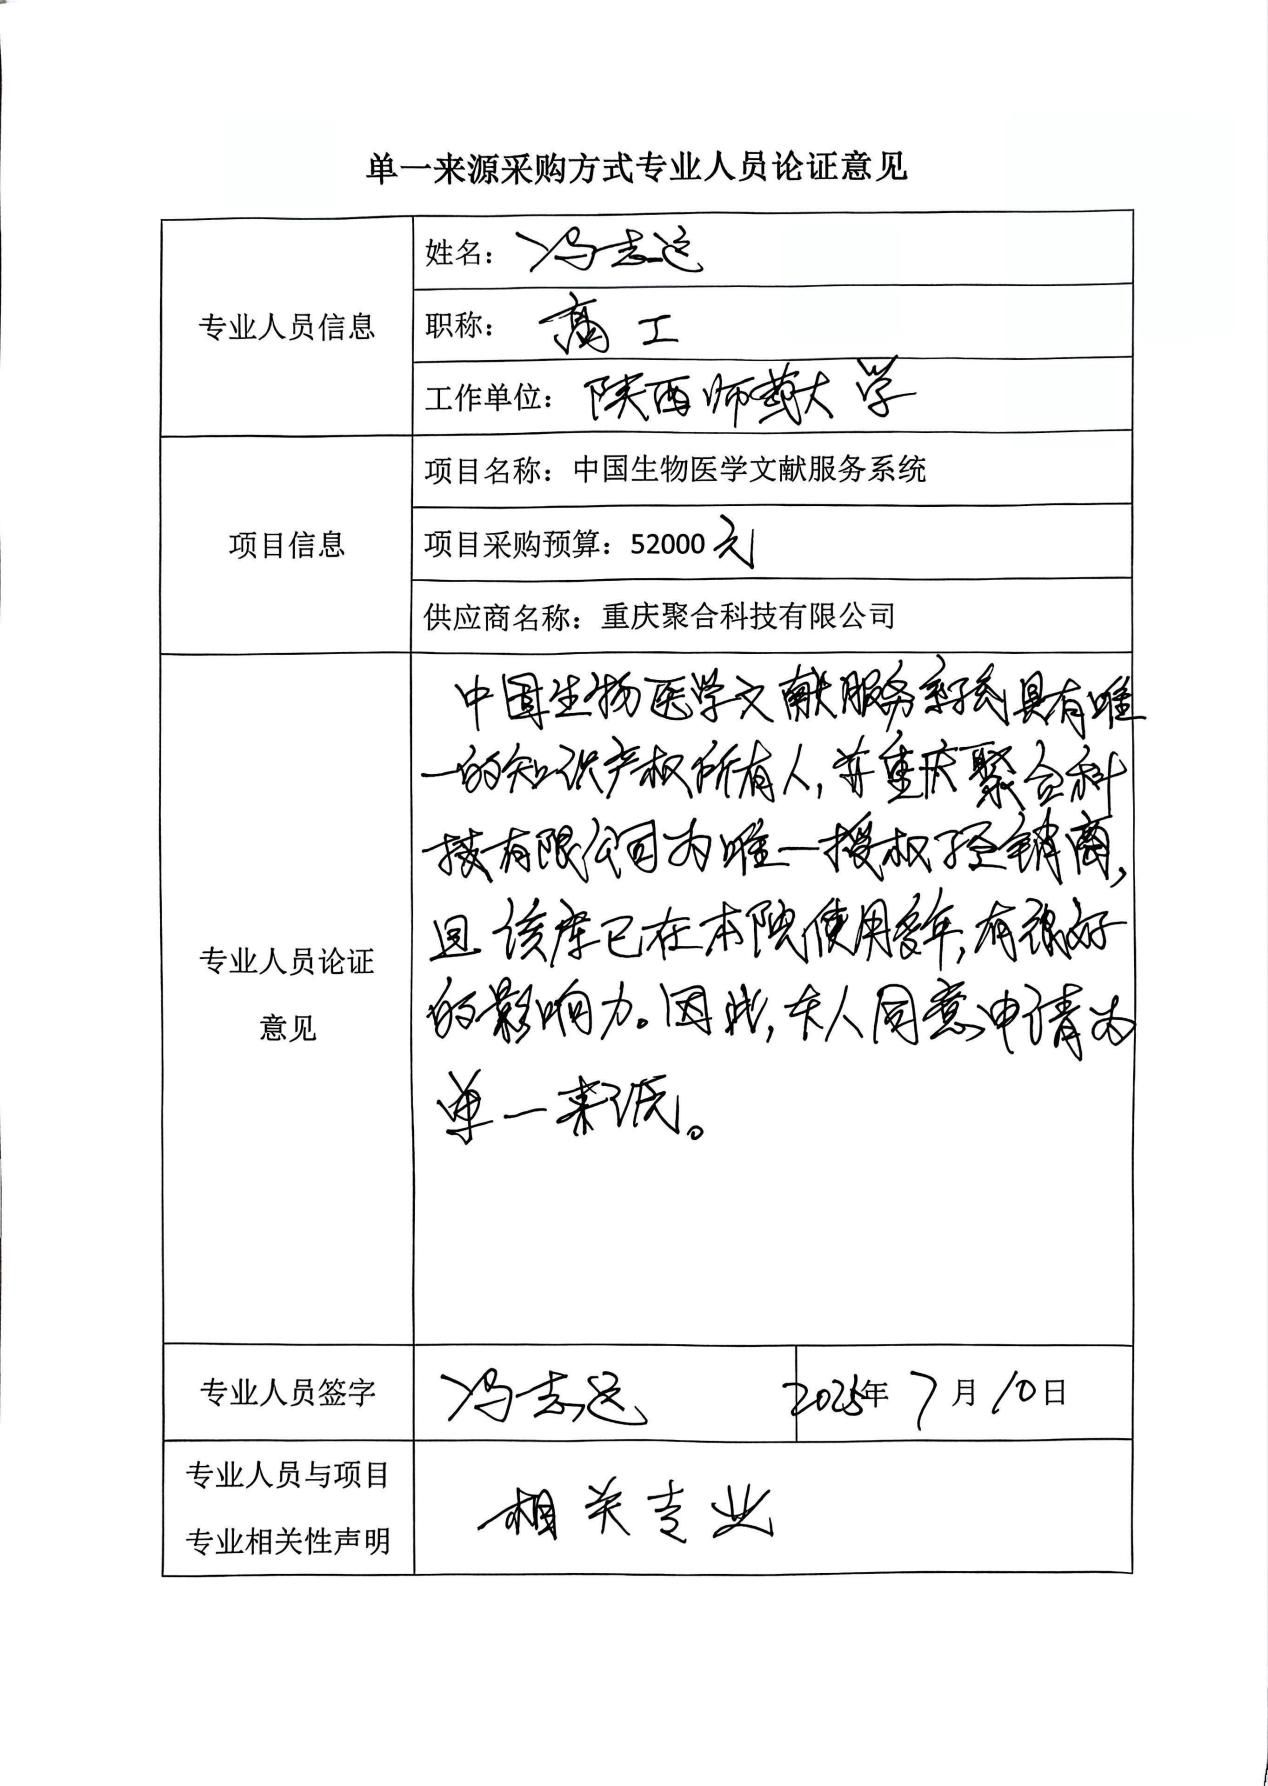 单一来源采购方式专业人员论证意见
专业人员信息
姓名：冯志远
职称：高工
工作单位：陕西师范大学
项目信息
项目名称：中国生物医学文献服务系统
项目采购预算：52000元
供应商名称：重庆聚合科技有限公司
专业人员论证
意见
中国生物医学文献服务系统具有唯
一的知识产权所有人，并重庆聚合科
技有限公司为唯一授权经销商，
且该库已在本院使用多年，有很好
的影响力。因此，本人同意申请为
单一来源。
专业人员签字
冯志远
2025年7月10日
专业人员与项目
专业相关性声明
相关专业